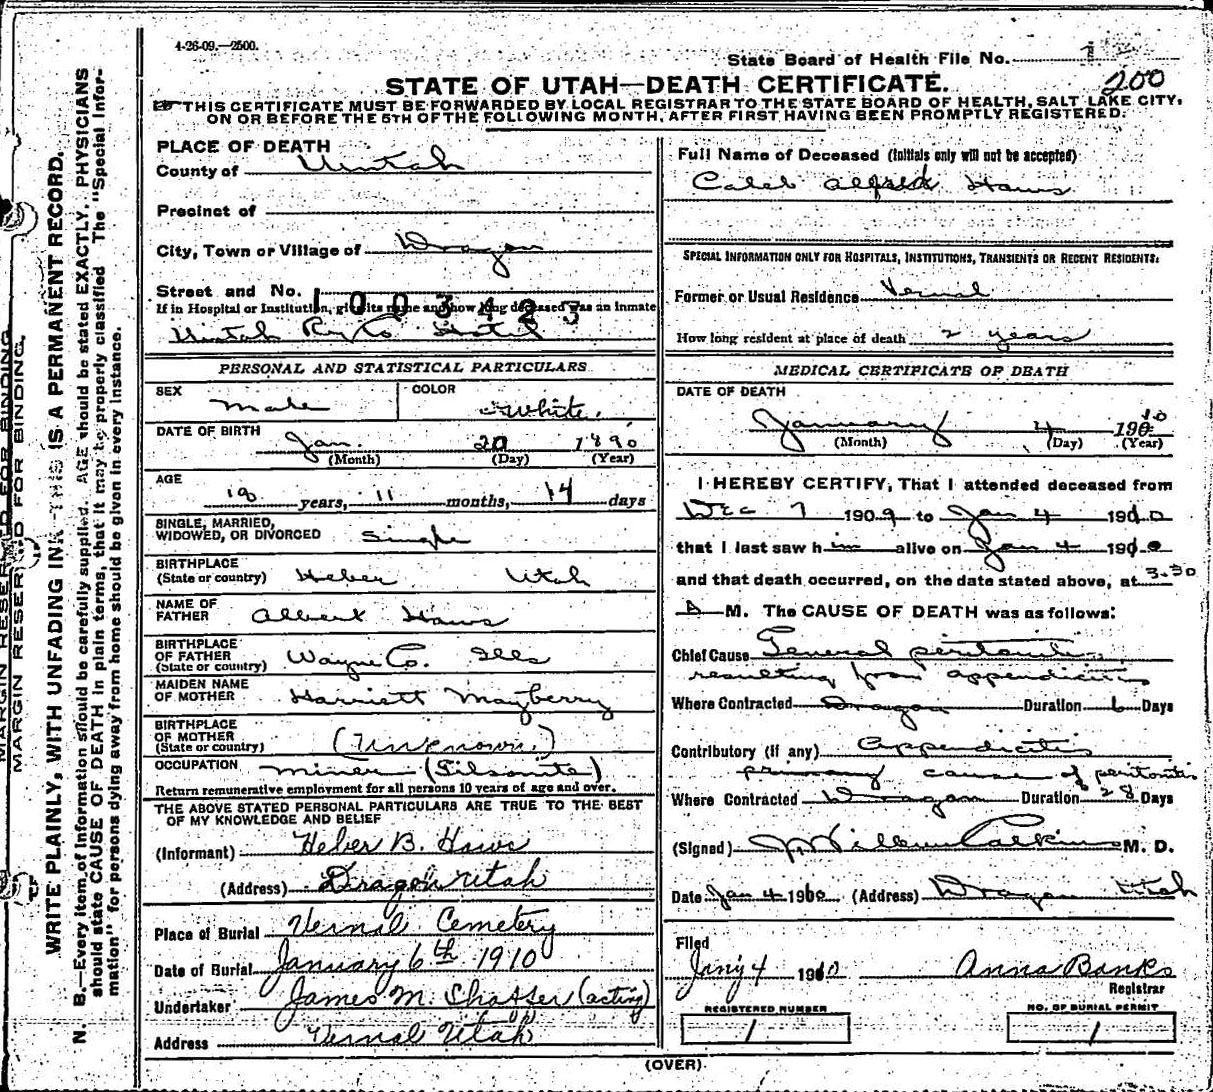 4-26-09.—2500.
State Board of Health File No.
200
STATE OF UTAH—DEATH CERTIFICATE.
THIS CERTIFICATE MUST BE FORWARDED BY LOCAL REGISTRAR TO THE STATE BOARD OF HEALTH, SALT LAKE CITY,
ON OR BEFORE THE 5TH OF THE FOLLOWING MONTH, AFTER FIRST HAVING BEEN PROMPTLY REGISTERED.
MARGIN RESERVED FOR BINDING
MARGIN RESERVED FOR BINDING.
WRITE PLAINLY, WITH UNFADING INK—THIS IS A PERMANENT RECORD.
N. B.—Every item of information should be carefully supplied. AGE should be stated EXACTLY. PHYSICIANS
should state CAUSE OF DEATH in plain terms, that it may be properly classified. The "Special Infor-
mation" for persons dying away from home should be given in every instance.
PLACE OF DEATH
County of Uintah
Precinct of
City, Town or Village of Dragon
Street and No.
1003423
If in Hospital or Institution, give its name and how long deceased was an inmate
Uintah Ry Co Hotel
PERSONAL AND STATISTICAL PARTICULARS
SEX Male COLOR White.
DATE OF BIRTH Jan. 20 1890
(Month) (Day) (Year)
AGE
19 years, 11 months, 14 days
SINGLE, MARRIED,
WIDOWED, OR DIVORCED Single
BIRTHPLACE
(State or country) Heber Utah
NAME OF
FATHER Albert Haws
BIRTHPLACE
OF FATHER
(State or country) Wayne Co. Ills
MAIDEN NAME
OF MOTHER Harriett Mayberry
BIRTHPLACE
OF MOTHER
(State or country) (Unknown.)
OCCUPATION Miner (Gilsonite)
Return remunerative employment for all persons 10 years of age and over.
THE ABOVE STATED PERSONAL PARTICULARS ARE TRUE TO THE BEST
OF MY KNOWLEDGE AND BELIEF
(Informant) Heber B. Haws
(Address) Dragon Utah
Place of Burial Vernal Cemetery
Date of Burial January 6th 1910
Undertaker James M. Shaffer (acting)
Address Vernal Utah
Full Name of Deceased (Initials only will not be accepted)
Caleb Alfred Haws
SPECIAL INFORMATION ONLY FOR HOSPITALS, INSTITUTIONS, TRANSIENTS OR RECENT RESIDENTS.
Former or Usual Residence Vernal
How long resident at place of death 2 years
MEDICAL CERTIFICATE OF DEATH
DATE OF DEATH
January 4 1910
(Month) (Day) (Year)
I HEREBY CERTIFY, That I attended deceased from
Dec 7 1909 to Jan 4 1910
that I last saw him alive on Jan 4 1910
and that death occurred, on the date stated above, at 3.30
M. The CAUSE OF DEATH was as follows:
Chief Cause General peritonitis
resulting from appendicitis
Where Contracted Dragon Duration 6 Days
Contributory (if any) Appendicitis
primary cause of peritonitis
Where Contracted Dragon Duration 28 Days
(Signed) J Wilburn Calkins M. D.
Date Jan 4 1910 (Address) Dragon Utah
Filed
Jany 4 1910 Anna Banks
Registrar
REGISTERED NUMBER
1
NO. OF BURIAL PERMIT
1
(OVER)